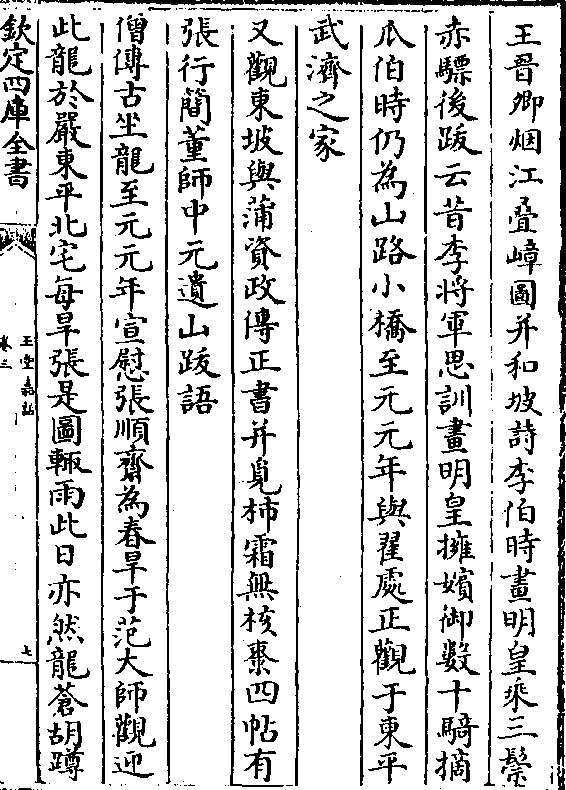 王晉卿烟江疊嶂圖并和坡詩李伯時畫明皇乘三鬃
赤驃後跋云昔李將軍思訓畫明皇擁嬪御數十騎摘
瓜伯時仍為山路小橋至元元年與翟處正觀于東平
武濟之家
又觀東坡與蒲資政傳正書并覓柿霜無核棗四帖有
張行簡董師中元遺山跋語
僧傳古坐龍至元元年宣慰張順齋為春旱于范大師觀迎
此龍於嚴東平北宅每旱張是圖輒雨此日亦然龍蒼胡蹲
欽定四庫全書
玉堂嘉話
卷三
七